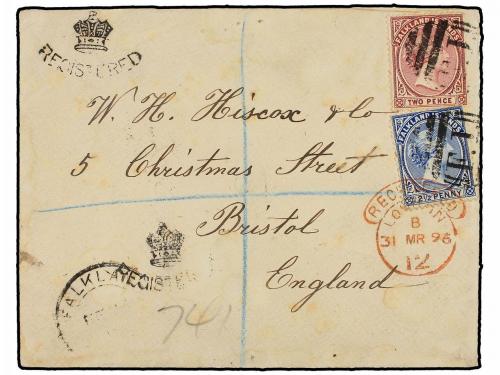 REGISTERED
FALKLAND ISLANDS
TWO PENCE
FALKLAND ISLANDS
2½ PENNY
W. H. Hiscox & Co
5 Christmas Street
Bristol
England
REGISTERED
LONDON
B
31 MR 96
12
FALKLA
REGISTE
741